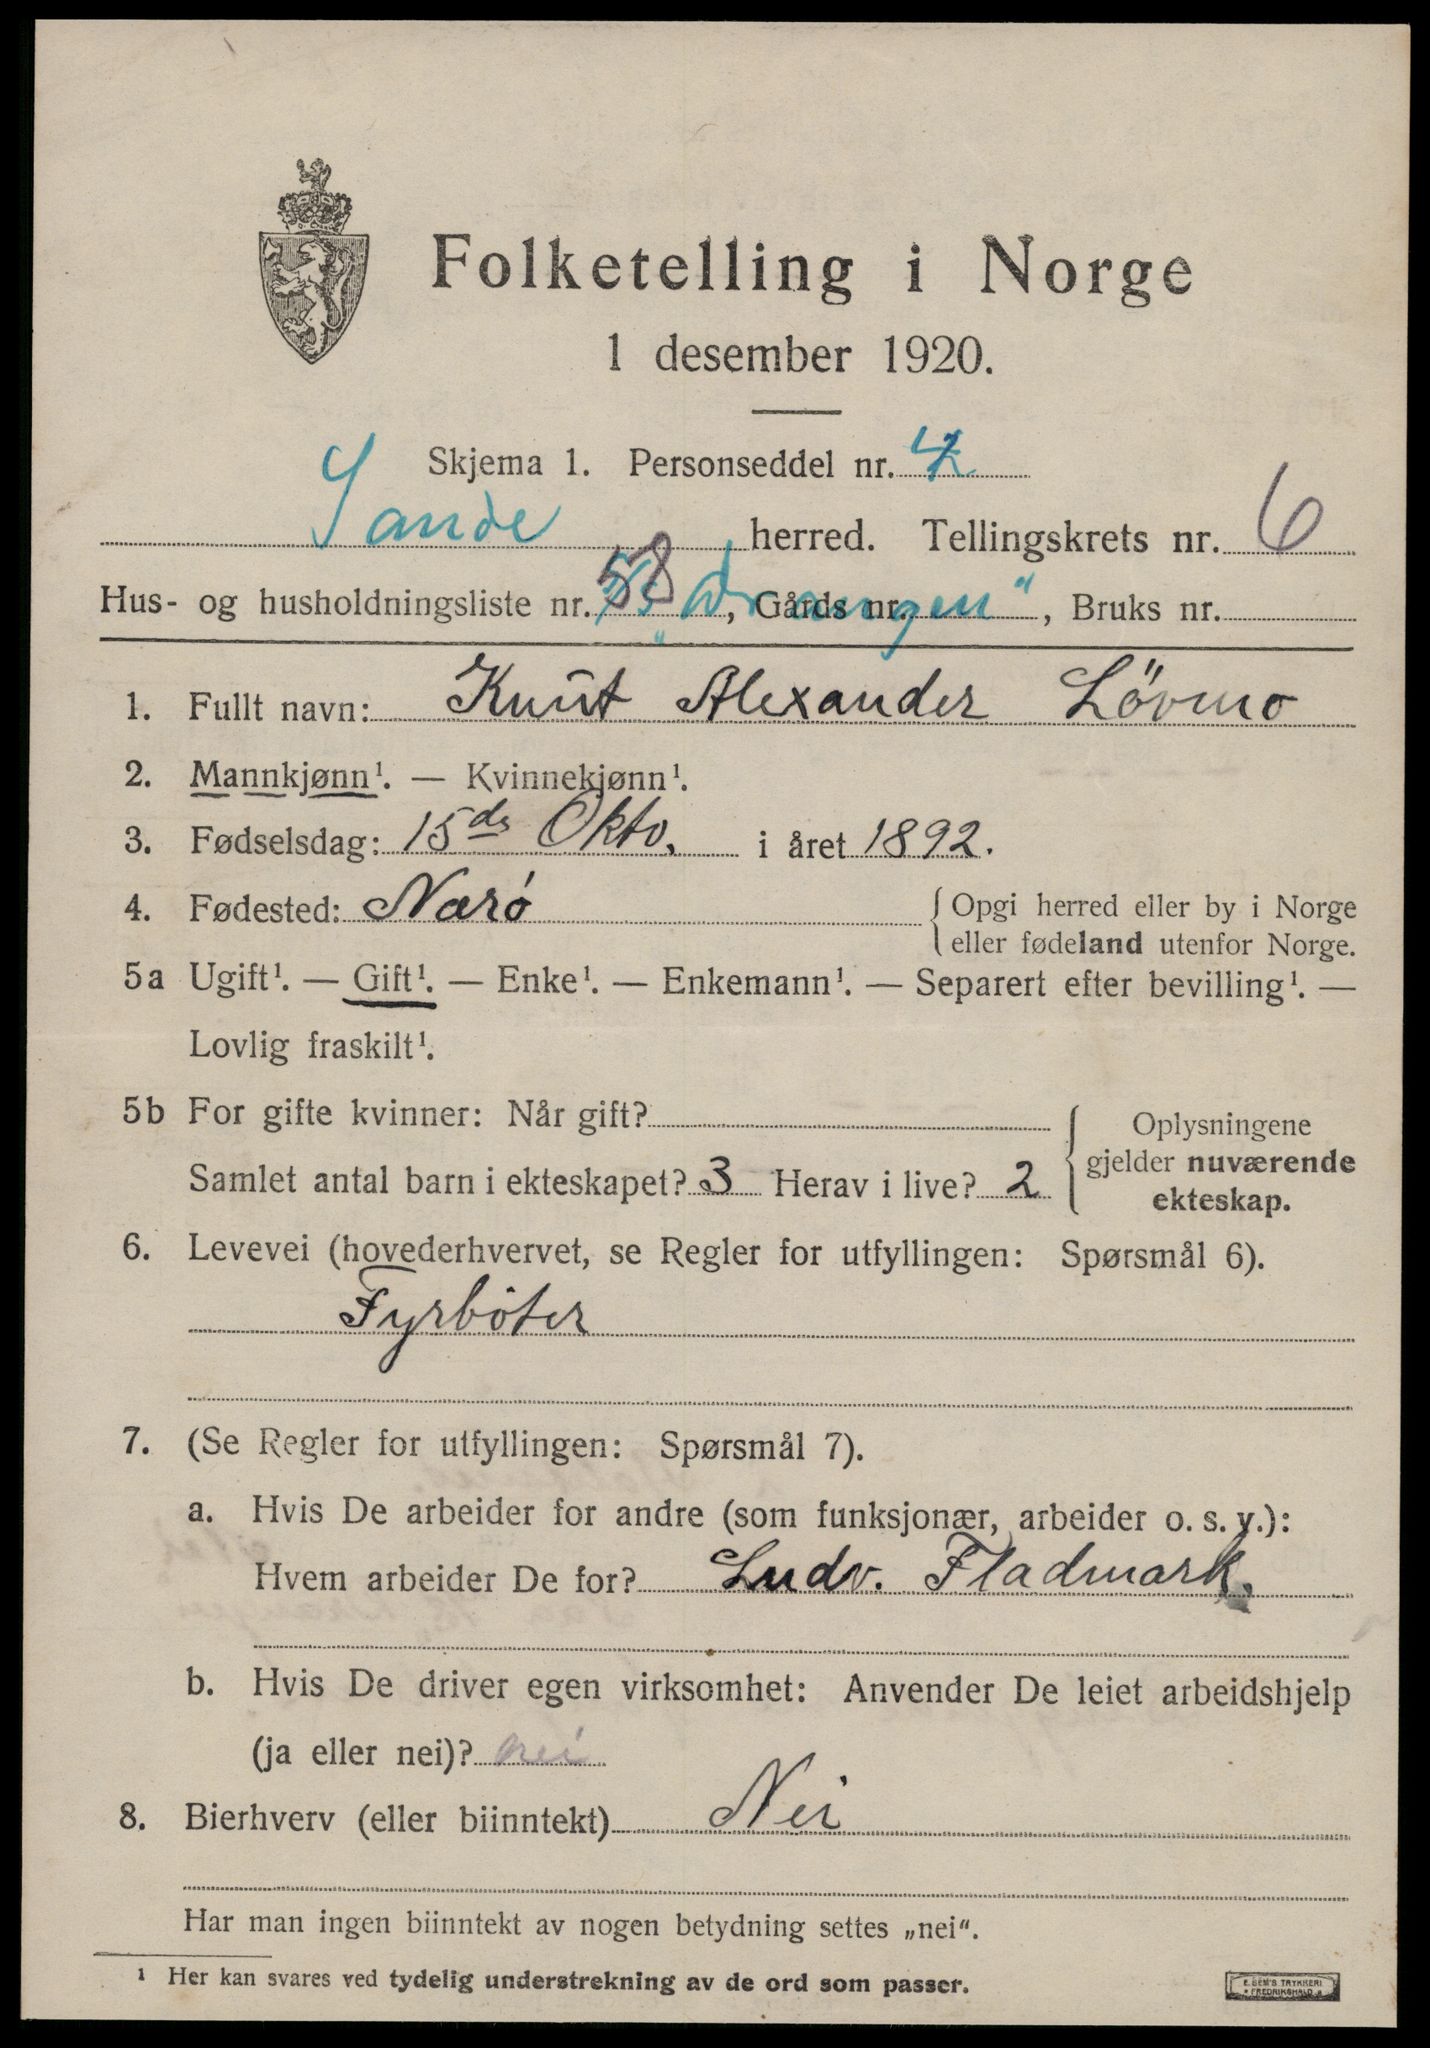 Folketelling i Norge
1 desember 1920.
Skjema 1. Personseddel nr.
Sande herred. Tellingskrets nr. 6
Hus- og husholdningsliste nr. 58, Gårds nr. , Bruks nr.
1. Fullt navn: Knut Alexander Lövmo
2. Mannkjønn¹. — Kvinnekjønn¹.
3. Fødselsdag: 15de Okto. i året 1892.
4. Fødested: Nærö { Opgi herred eller by i Norge
eller fødeland utenfor Norge.
5a Ugift¹. — Gift¹. — Enke¹. — Enkemann¹. — Separert efter bevilling¹. —
Lovlig fraskilt¹.
5b For gifte kvinner: Når gift?
Samlet antal barn i ekteskapet? 3 Herav i live? 2
{ Oplysningene
gjelder nuværende
ekteskap.
6. Levevei (hovederhvervet, se Regler for utfyllingen: Spørsmål 6).
Fyrböter
7. (Se Regler for utfyllingen: Spørsmål 7).
a. Hvis De arbeider for andre (som funksjonær, arbeider o. s. v.):
Hvem arbeider De for? Ludv. Fladmark.
b. Hvis De driver egen virksomhet: Anvender De leiet arbeidshjelp
(ja eller nei)? nei
8. Bierhverv (eller biinntekt) Nei
Har man ingen biinntekt av nogen betydning settes „nei“.
¹ Her kan svares ved tydelig understrekning av de ord som passer.
E. SEM'S TRYKKERI
FREDRIKSHALD